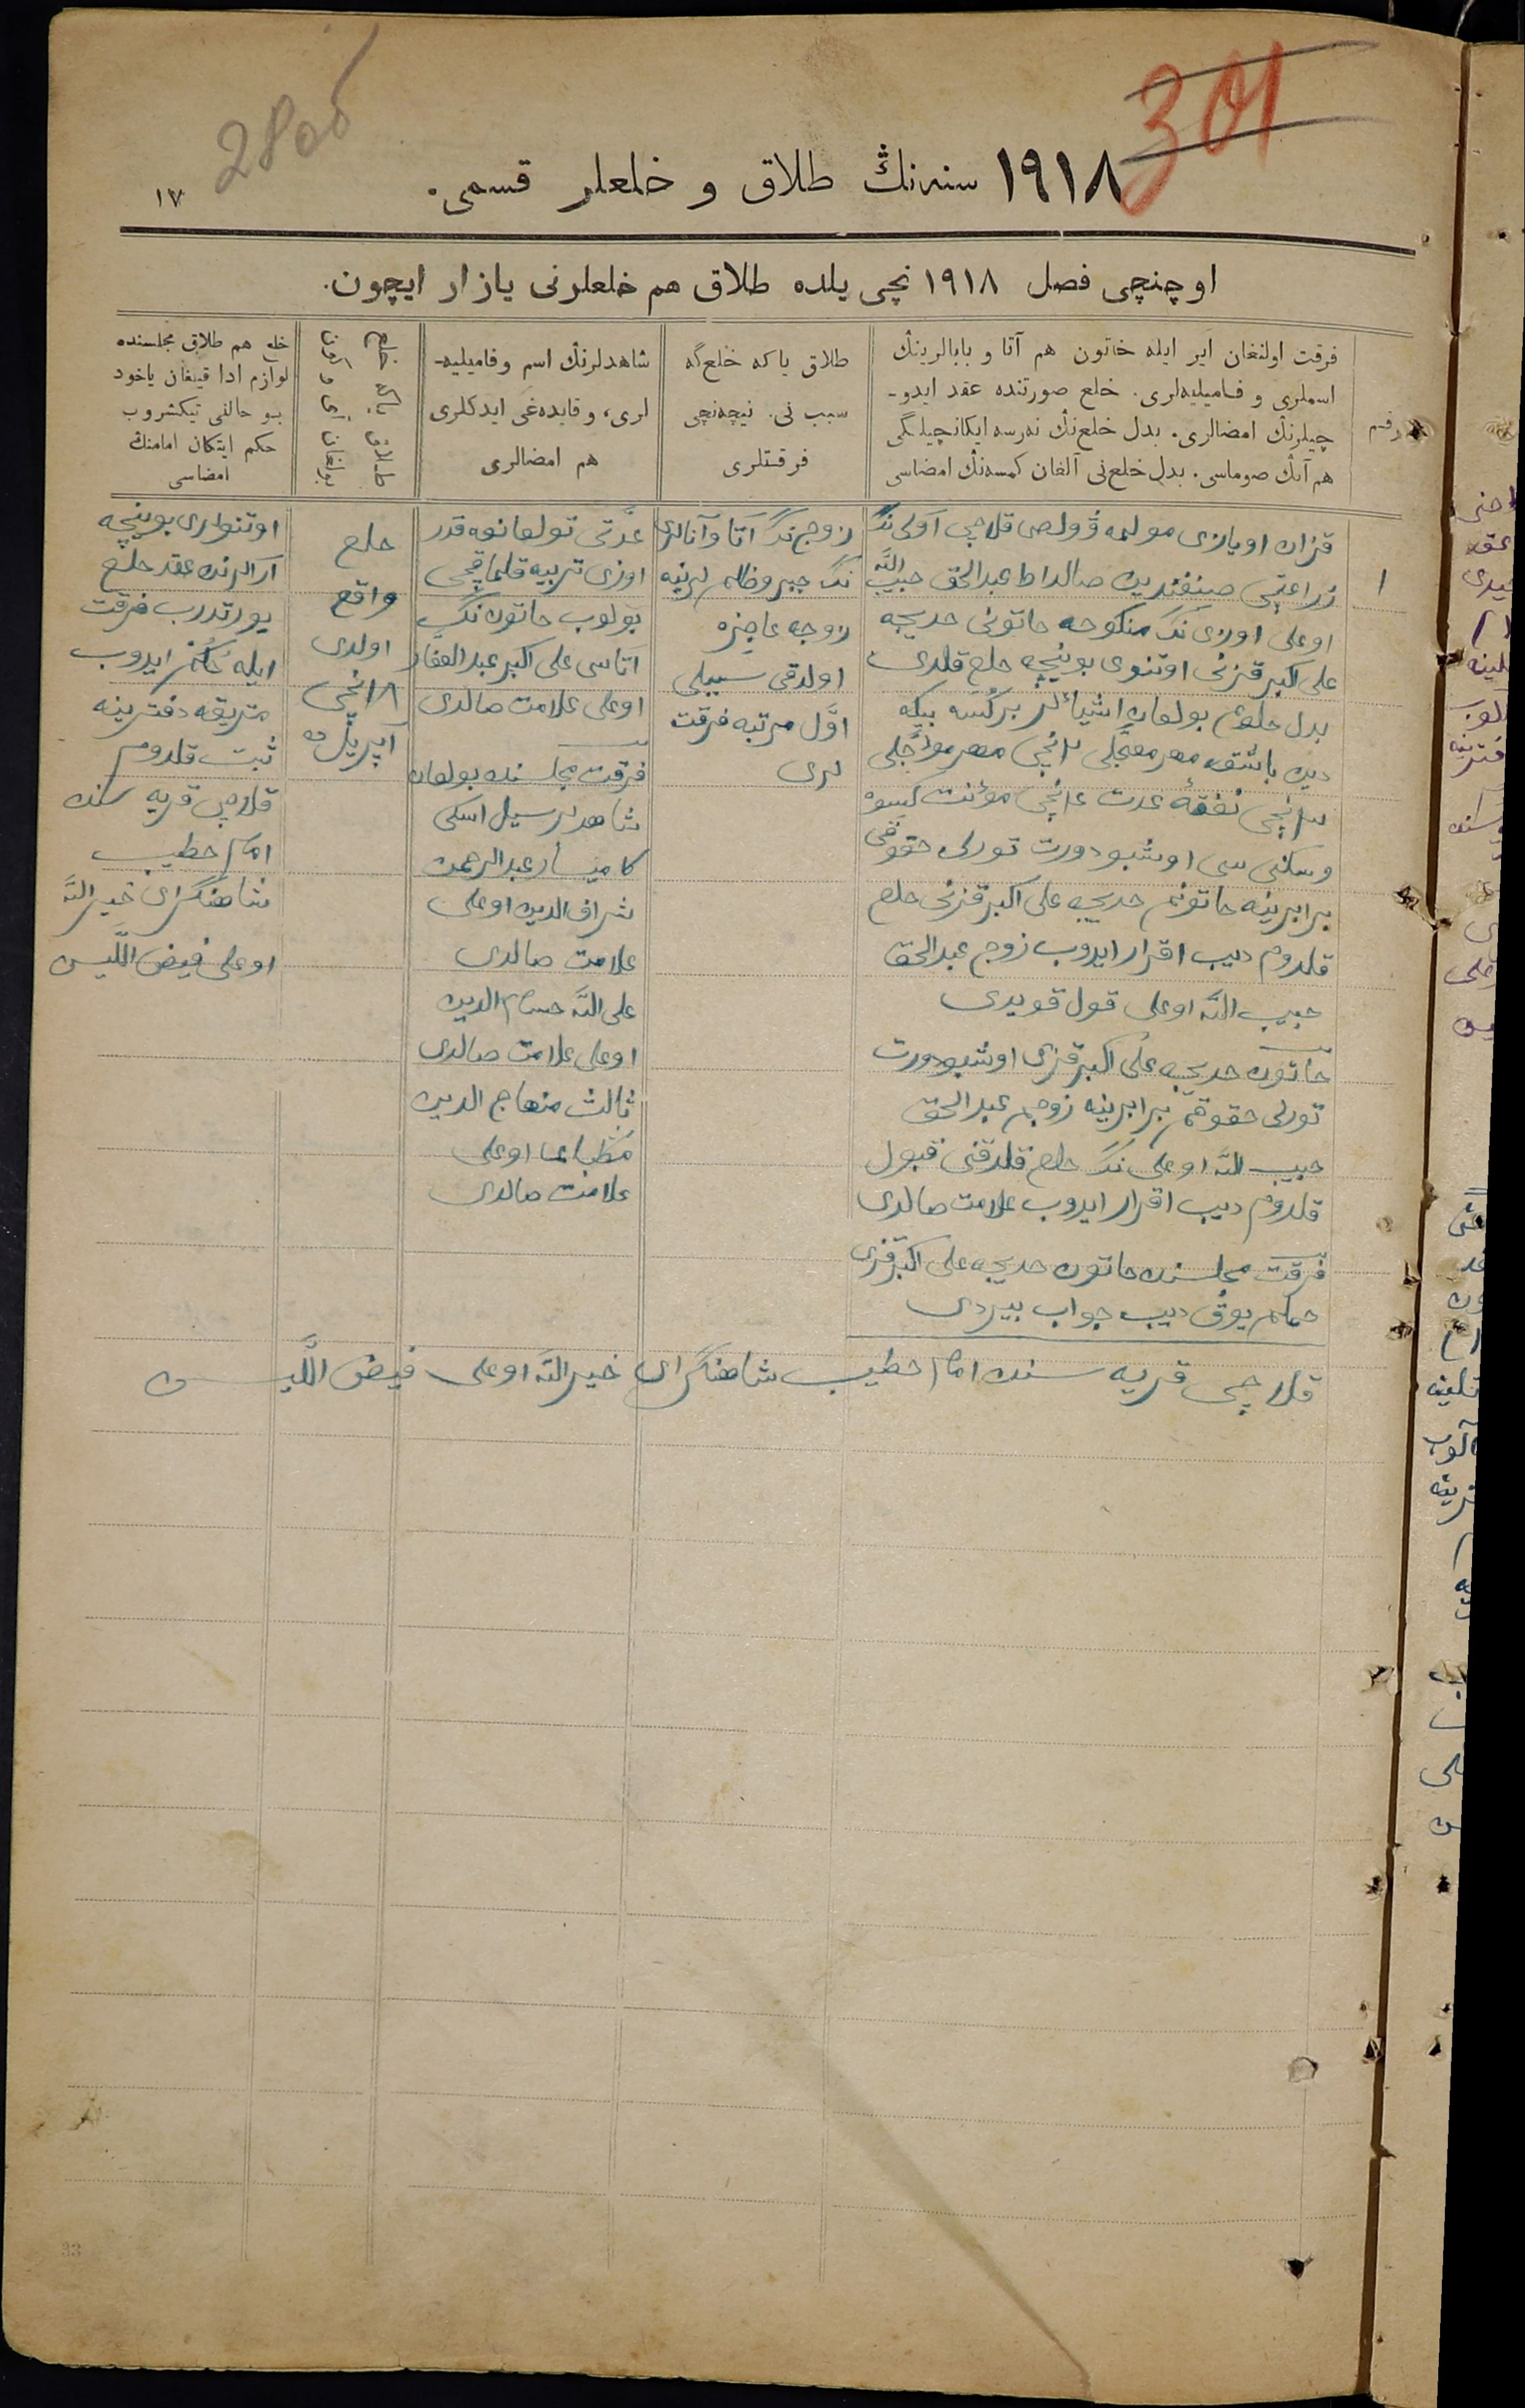 301
280б
١٩١٨ سنه‌نڭ طلاق و خلعلر قسمی.
١٧
اوچنچی فصل ١٩١٨ نچی یلده طلاق هم خلعلرنی یازار ایچون.
رقم
فرقت اولنغان ایر ایله خاتون هم آتا و بابالرینڭ
اسملری و فامیلیه‌لری. خلع صورتنده عقد ایدو-
چیلرنڭ امضالری. بدل خلع‌نڭ نه‌رسه ایکانچیلگی
هم آنڭ صوماسی. بدل خلع‌نی آلغان کمسه‌نڭ امضاسی
طلاق یا که خلع‌گه
سبب نی. نیچه‌نچی
فرقتلری
شاهدلرنڭ اسم و فامیلیه-
لری، و قایده‌غی ایدکلری
هم امضالری
طلاق یاکه خلع
بولغان آی و کون
خلع هم طلاق مجلسنده
لوازم ادا قیلغان یاخود
بو حالنی تیکشروب
حکم ایتکان امامنڭ
امضاسی
١
قزان اویازی قلاچی آولی نڭ
زراعتچی عبدالحق حبیب الله
اوغلی اوزی نڭ منکوحه خاتونی خدیجه
علی اکبر قزنی اوتنوی بوینچه خلع قلدی
بدل خلعی بولغان
دین باشقه مهر معجلی ٢انچی مهر مؤجلی
٣انچی نفقهٔ عدت ٤انچی مؤنت کسوه
وسکنی سی اوشبو دورت تورلی حقوقی
برابرینه خاتونم خدیجه علی اکبر قزنی خلع
قلدوم دیب اقرار ایدوب زوج عبدالحق
حبیب الله اوغلی قول قویدی
خاتون خدیجه علی اکبر قزی اوشبو دورت
تورلی حقوقم برابرینه زوجم عبدالحق
حبیب الله اوغلی نڭ خلع قلدقنی قبول
قلدوم دیب اقرار ایدوب علامت صالدی
فرقت مجلسنده خاتون خدیجه علی اکبر قزی
حملم یوق دیب جواب بیردی
زوج نڭ آتا و آنالری
نڭ جبر و ظلم لرینه
زوجه عاجزه
اولدقی سببلی
اول مرتبه فرقت
لری
عدتی تولغانغه قدر
اوزی تربیه قلماقچی
بولوب خاتون نڭ
آتاسی علی اکبر عبدالغفار
اوغلی علامت صالدی
فرقت مجلسنده بولغان
شاهدلر
عبدالرحمن
شراف الدین اوغلی
علامت صالدی
علی الله حسام الدین
اوغلی علامت صالدی
ثالث منهاج الدین
اوغلی
علامت صالدی
خلع
واقع
اولدی
١٨انچی
اپریل ده
اوتنولری بوینچه
آرالرنده عقد خلع
یورتدرب فرقت
ایله حکم ایدوب
متریقه دفترینه
ثبت قلدوم
قلاچی قریه سنده
امام خطیب
شاهنگرای خیرالله
اوغلی فیض اللین
قلاچی قریه سنده امام خطیب شاهنگرای خیرالله اوغلی فیض اللین
33